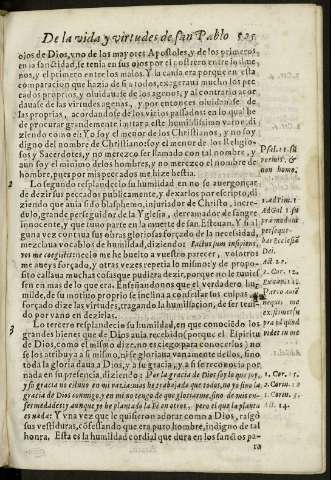 De la vida y virtudes de san Pablo 525
ojos de Dios, vno de los mayores Apostoles, y de los primeros,
en la sanctidad, se tenia en sus ojos por el postrero entre los bue
nos, y el primero entre los malos. Y la causa era porque en esta
comparacion que hazia de si a todos, exageraua mucho los pec
cados proprios, y oluidauase de los agenos; y al contrario acor
dauase de las virtudes agenas, y por entonces oluidauase de
las proprias, acordandose de los vicios passados: en lo qual he
de procurar grandemente imitar a este humildissimo varon, di
ziendo como el: Yo soy el menor de los Christianos, y no soy
digno del nombre de Christiano: soy el menor de los Religio-
sos y Sacerdotes, y no merezco ser llamado con tal nombre, y
aun soy el minimo de los hombres, y no merezco el nombre de
hombre, pues por mis peccados me hize bestia.
Psal. 21. sũ
vermis, &
non homo.
2 Lo segundo resplandecio su humildad en no se auergonçar
de dezir sus pecados publicamente, y dexarlos por escripto, di
ziendo que auia sido blasphemo, injuriador de Christo, incre-
dulo, grande perseguidor de la Yglesia, derramador de sangre
innocente, y que tuuo parte en la muerte de san Esteuan. Y si al
guna vez contaua sus obras gloriosas forçado de la necessidad,
mezclaua vocablos de humildad, diziendo: Factus sum insipiens,
vos me coegistis: necio me he buelto a vuestro parecer, vosotros
me aueys forçado, y otras vezes repetia lo mismo: y de propo-
sito callaua muchas cosas que pudiera dezir, porque no le tuuies
sen en mas de lo que era. Enseñandonos que el verdadero hu-
milde, de su motiuo proprio se inclina a confessar sus culpas, y
forçado dize las virtudes, tragando la humillacion, de ser teni-
do por vano en dezirlas.
1. ad Tim. 1
Ad Gal. 1
persequebar Ecclesiã
Dei.
Act. 22.
2. Cor. 12.
3 Lo tercero resplandecio su humildad, en que conociẽdo los
grandes bienes que de Dios auia recebido (porque el Espiritu
de Dios, como el mismo dize, no es ciego para conocerlos) no
se los atribuya a si mismo, ni se gloriaua vanamente dellos, sino
toda la gloria daua a Dios, y a su gracia, y a si se reconocia por
nada en su presencia, diziendo: Por la gracia de Dios soy lo que soy,
y su gracia no estuuo en mi vazia: mas he trabajado que todos, no yo sino la
gracia de Dios conmigo, y en mi no tengo de que gloriarme, sino de mis en-
fermedades: y aunque yo he plantado la Fe en otros, pero el que la planta
es nada: Y vna vez que le quisieron adorar como a Dios, rasgó
sus vestiduras, cõfessando que era puro hombre, indigno de tal
honra. Esta es la humildad cordial que dura en los sanctos pa-
1. Cor. 15.
2. Corin. 12
1. Corin. 3.
Act. 14.
ra